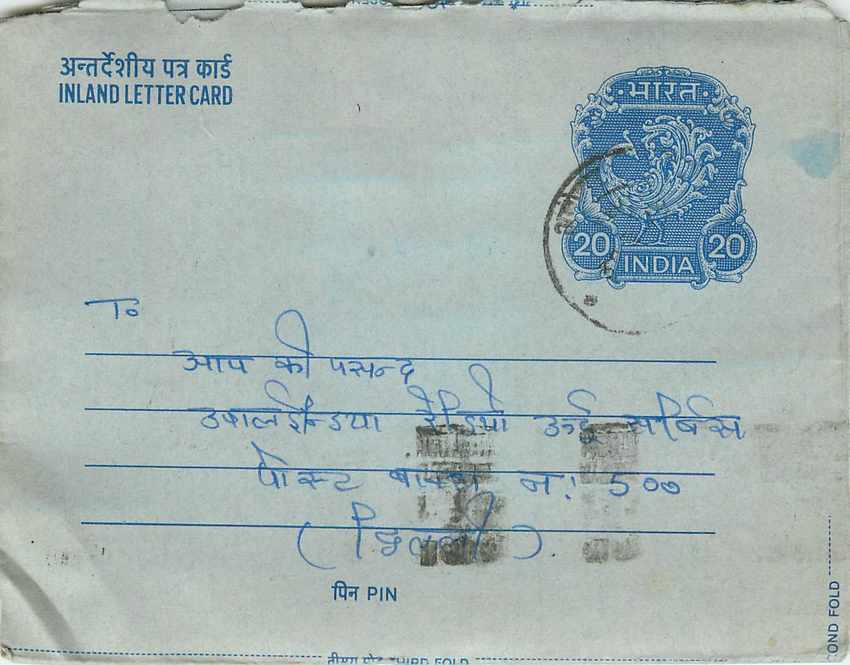 अन्तर्देशीय पत्र कार्ड
INLAND LETTER CARD
भारत
20 20
INDIA
To
आप की पसन्द
उवालईन्डया रेडियो ऊर्दू सर्विस
पोस्ट बाक्स न: 500
(दिल्ली)
पिन PIN
THIRD FOLD
OND FOLD